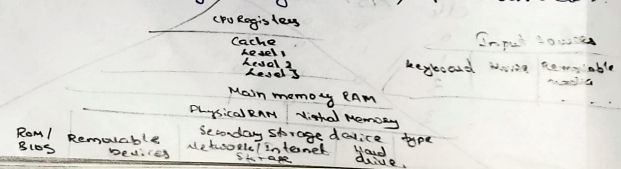 CPU Registers
Cache
Level 1
Level 2
Level 3
Input sources
Keyboard Mouse Removable media
Main memory RAM
Physical RAM Virtual Memory
Secondary Storage device type
ROM/ BIOS Removable Devices Network/Internet Storage Hard drive.